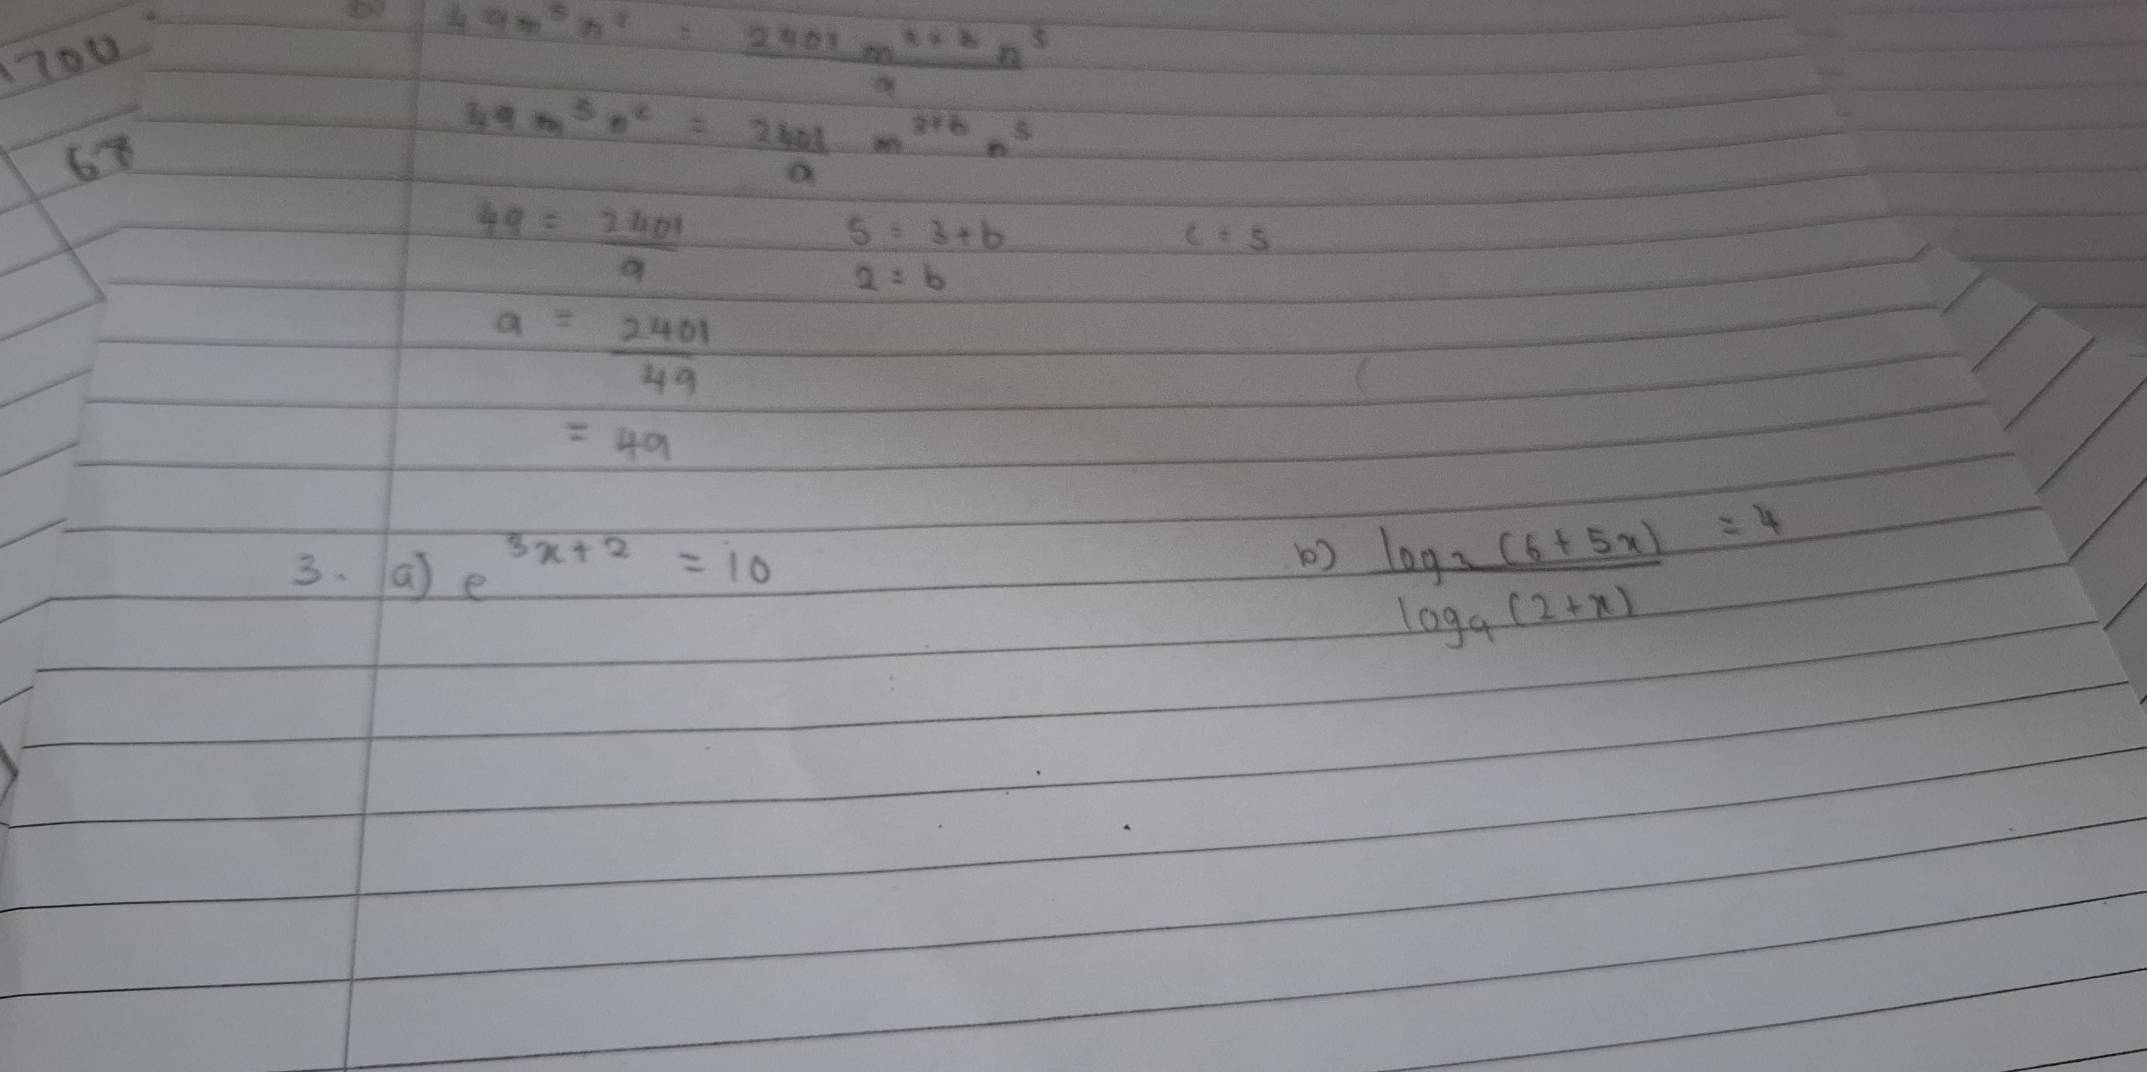 700
b) 49m⁵n² = 2401 m³⁺ᵇ n⁵ / a
67
49 m⁵ n² = 2401 / a m³⁺ᵇ n⁵
49 = 2401 / a 5 = 3+b c = 5
2 = b
a = 2401 / 49
= 49
3. a) e³ˣ⁺² = 10 b) log₂ (6 + 5x) / log₄ (2 + x) = 4